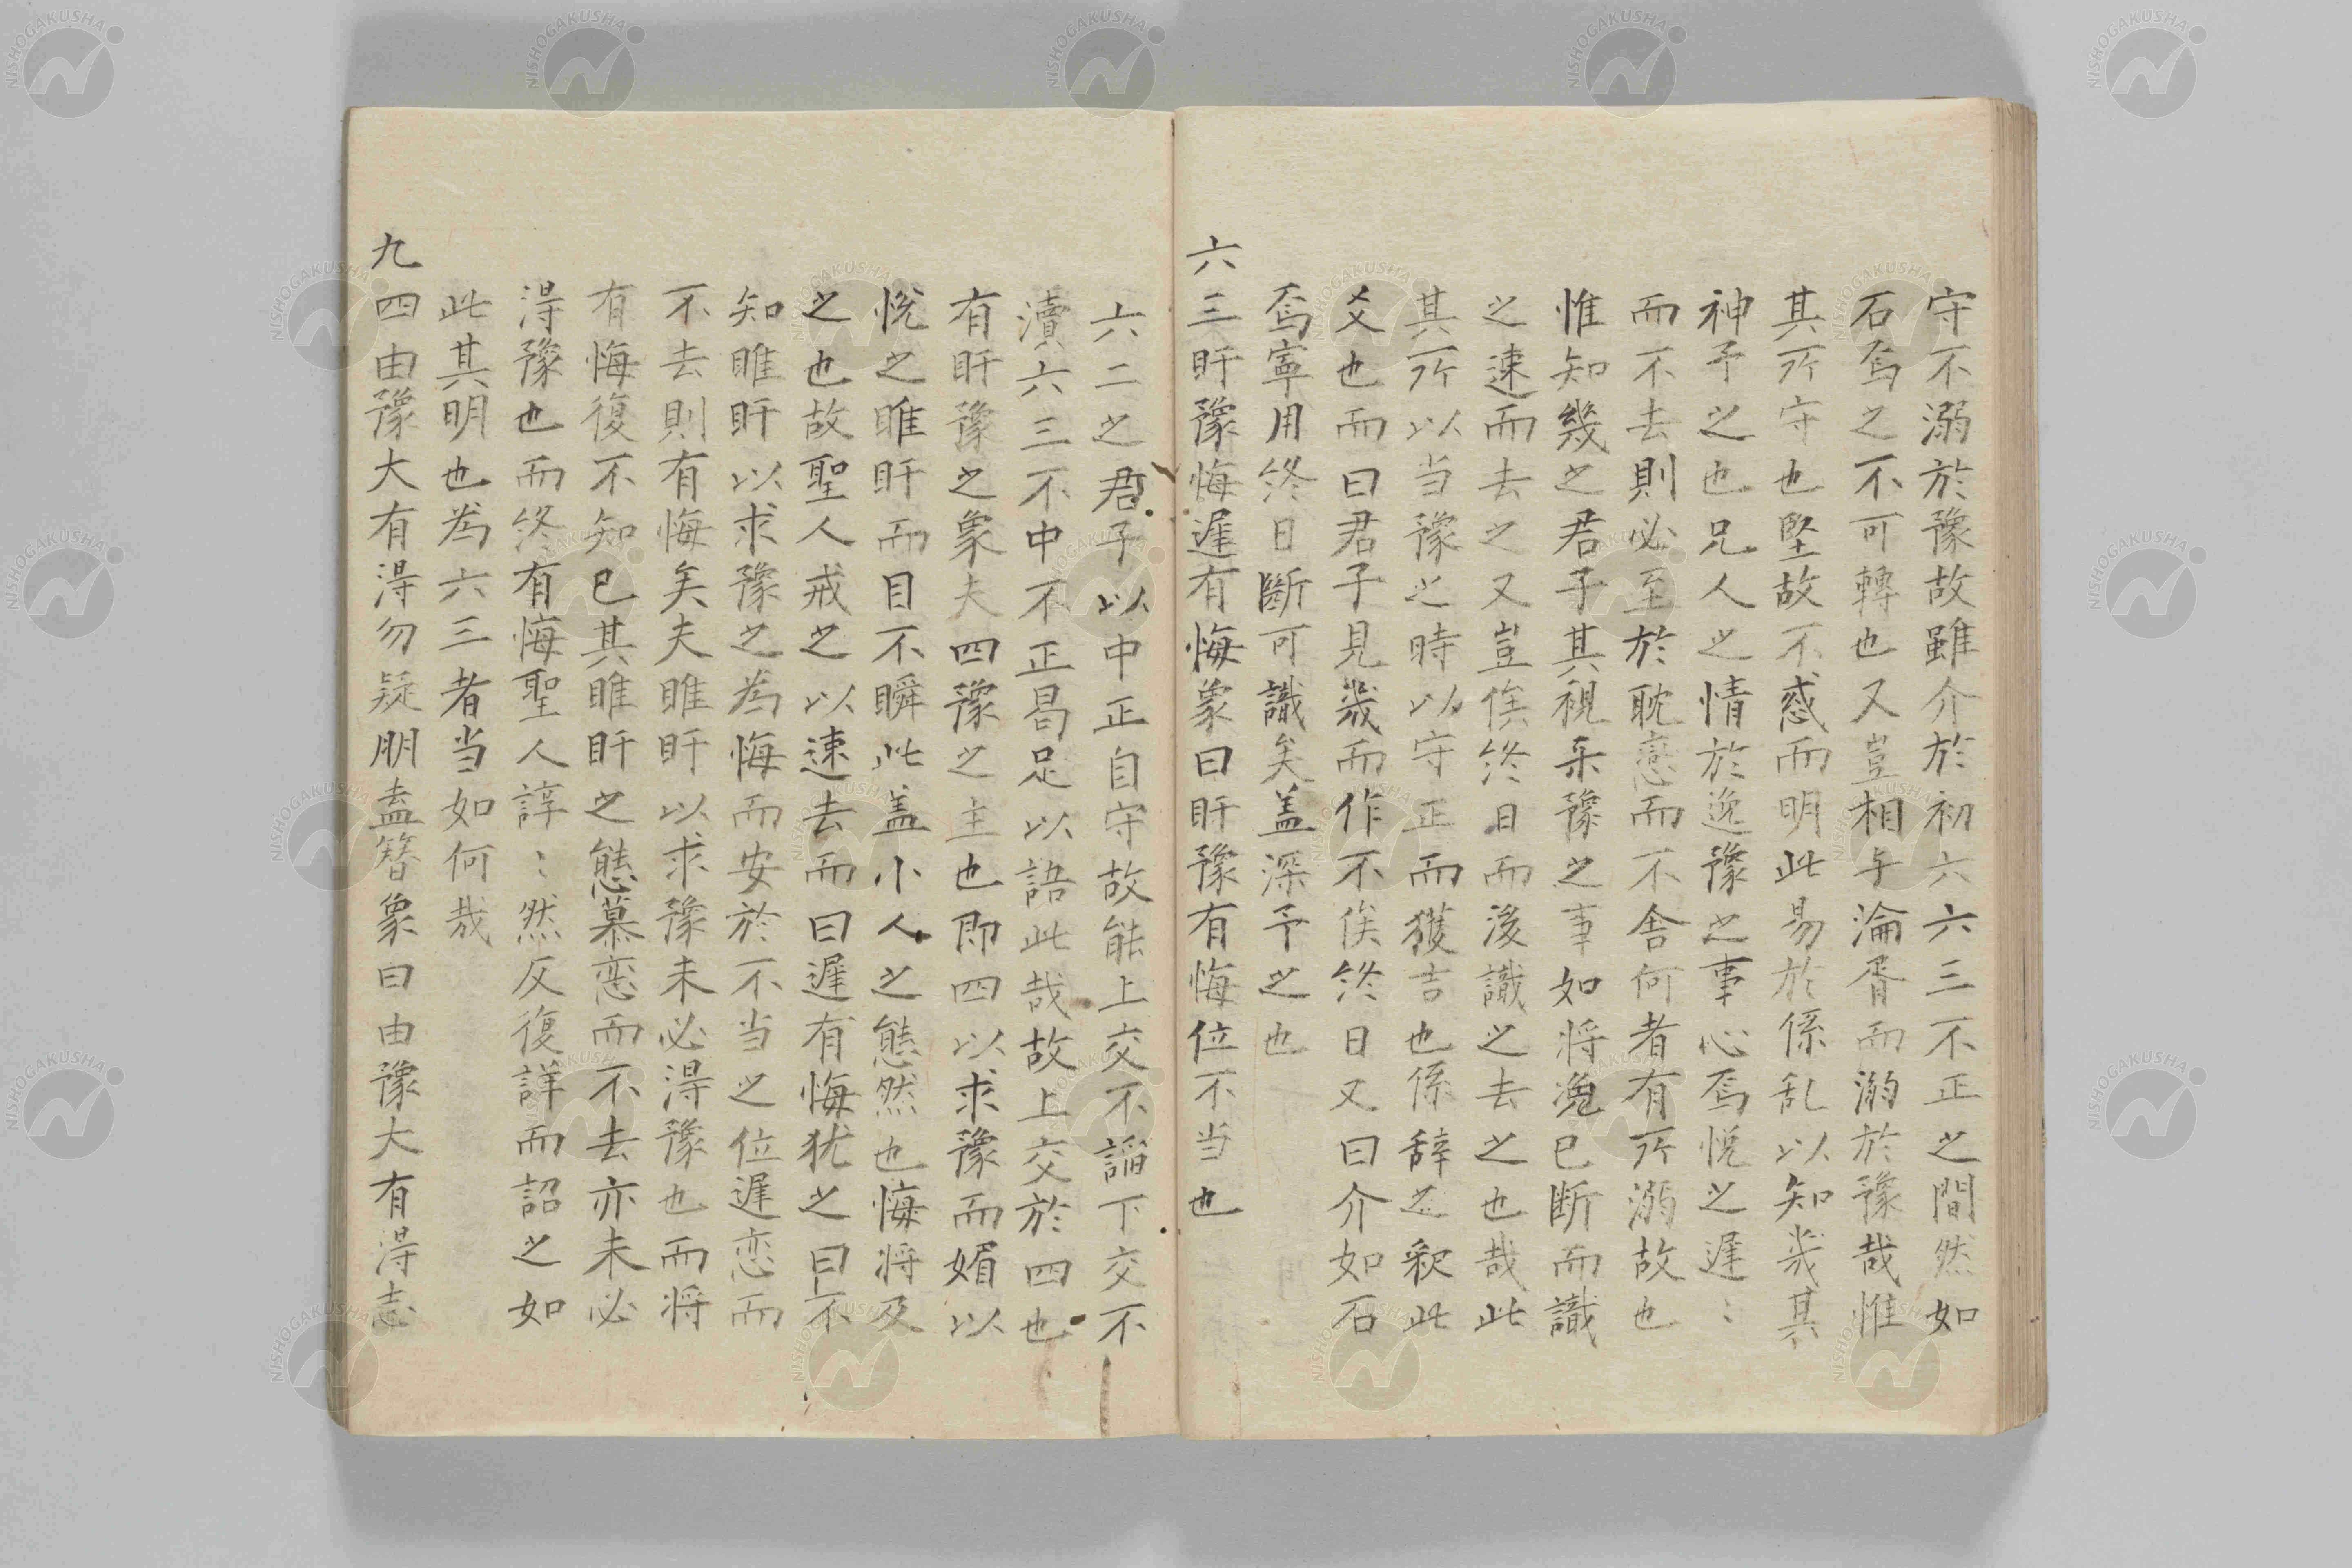 守不溺於豫故雖介於初六六三不正之間然如
石焉之不可轉也又豈相与淪胥而溺於豫哉惟
其所守也堅故不惑而明此易於係乱以知幾其
神予之也兄人之情於逸豫之事心焉悅之遲〻
而不去則必至於耽戀而不舍何者有所溺故也
惟知幾之君子其視乐豫之事如将浼已断而識
之速而去之又豈俟終日而後識之去之也哉此
其所以当豫之時以守正而獲吉也係辞之釈此
爻也而曰君子見幾而作不俟終日又曰介如石
焉寧用終日斷可識矣盖深予之也
六三盱豫悔遲有悔象曰盱豫有悔位不当也
六二之君子以中正自守故能上交不諂下交不
瀆六三不中不正曷足以語此哉故上交於四也
有盱豫之象夫四豫之主也即四以求豫而媚以
悅之睢盱而目不瞬此盖小人之態然也悔将及
之也故聖人戒之以速去而曰遲有悔犹之曰不
知睢盱以求豫之為悔而安於不当之位遲恋而
不去則有悔矣夫睢盱以求豫未必淂豫也而将
有悔復不知已其睢盱之態慕恋而不去亦未必
淂豫也而終有悔聖人諄〻然反復詳而詔之如
此其明也為六三者当如何哉
九四由豫大有淂勿疑朋盍簪象曰由豫大有淂志
NISHOGAKUSHA